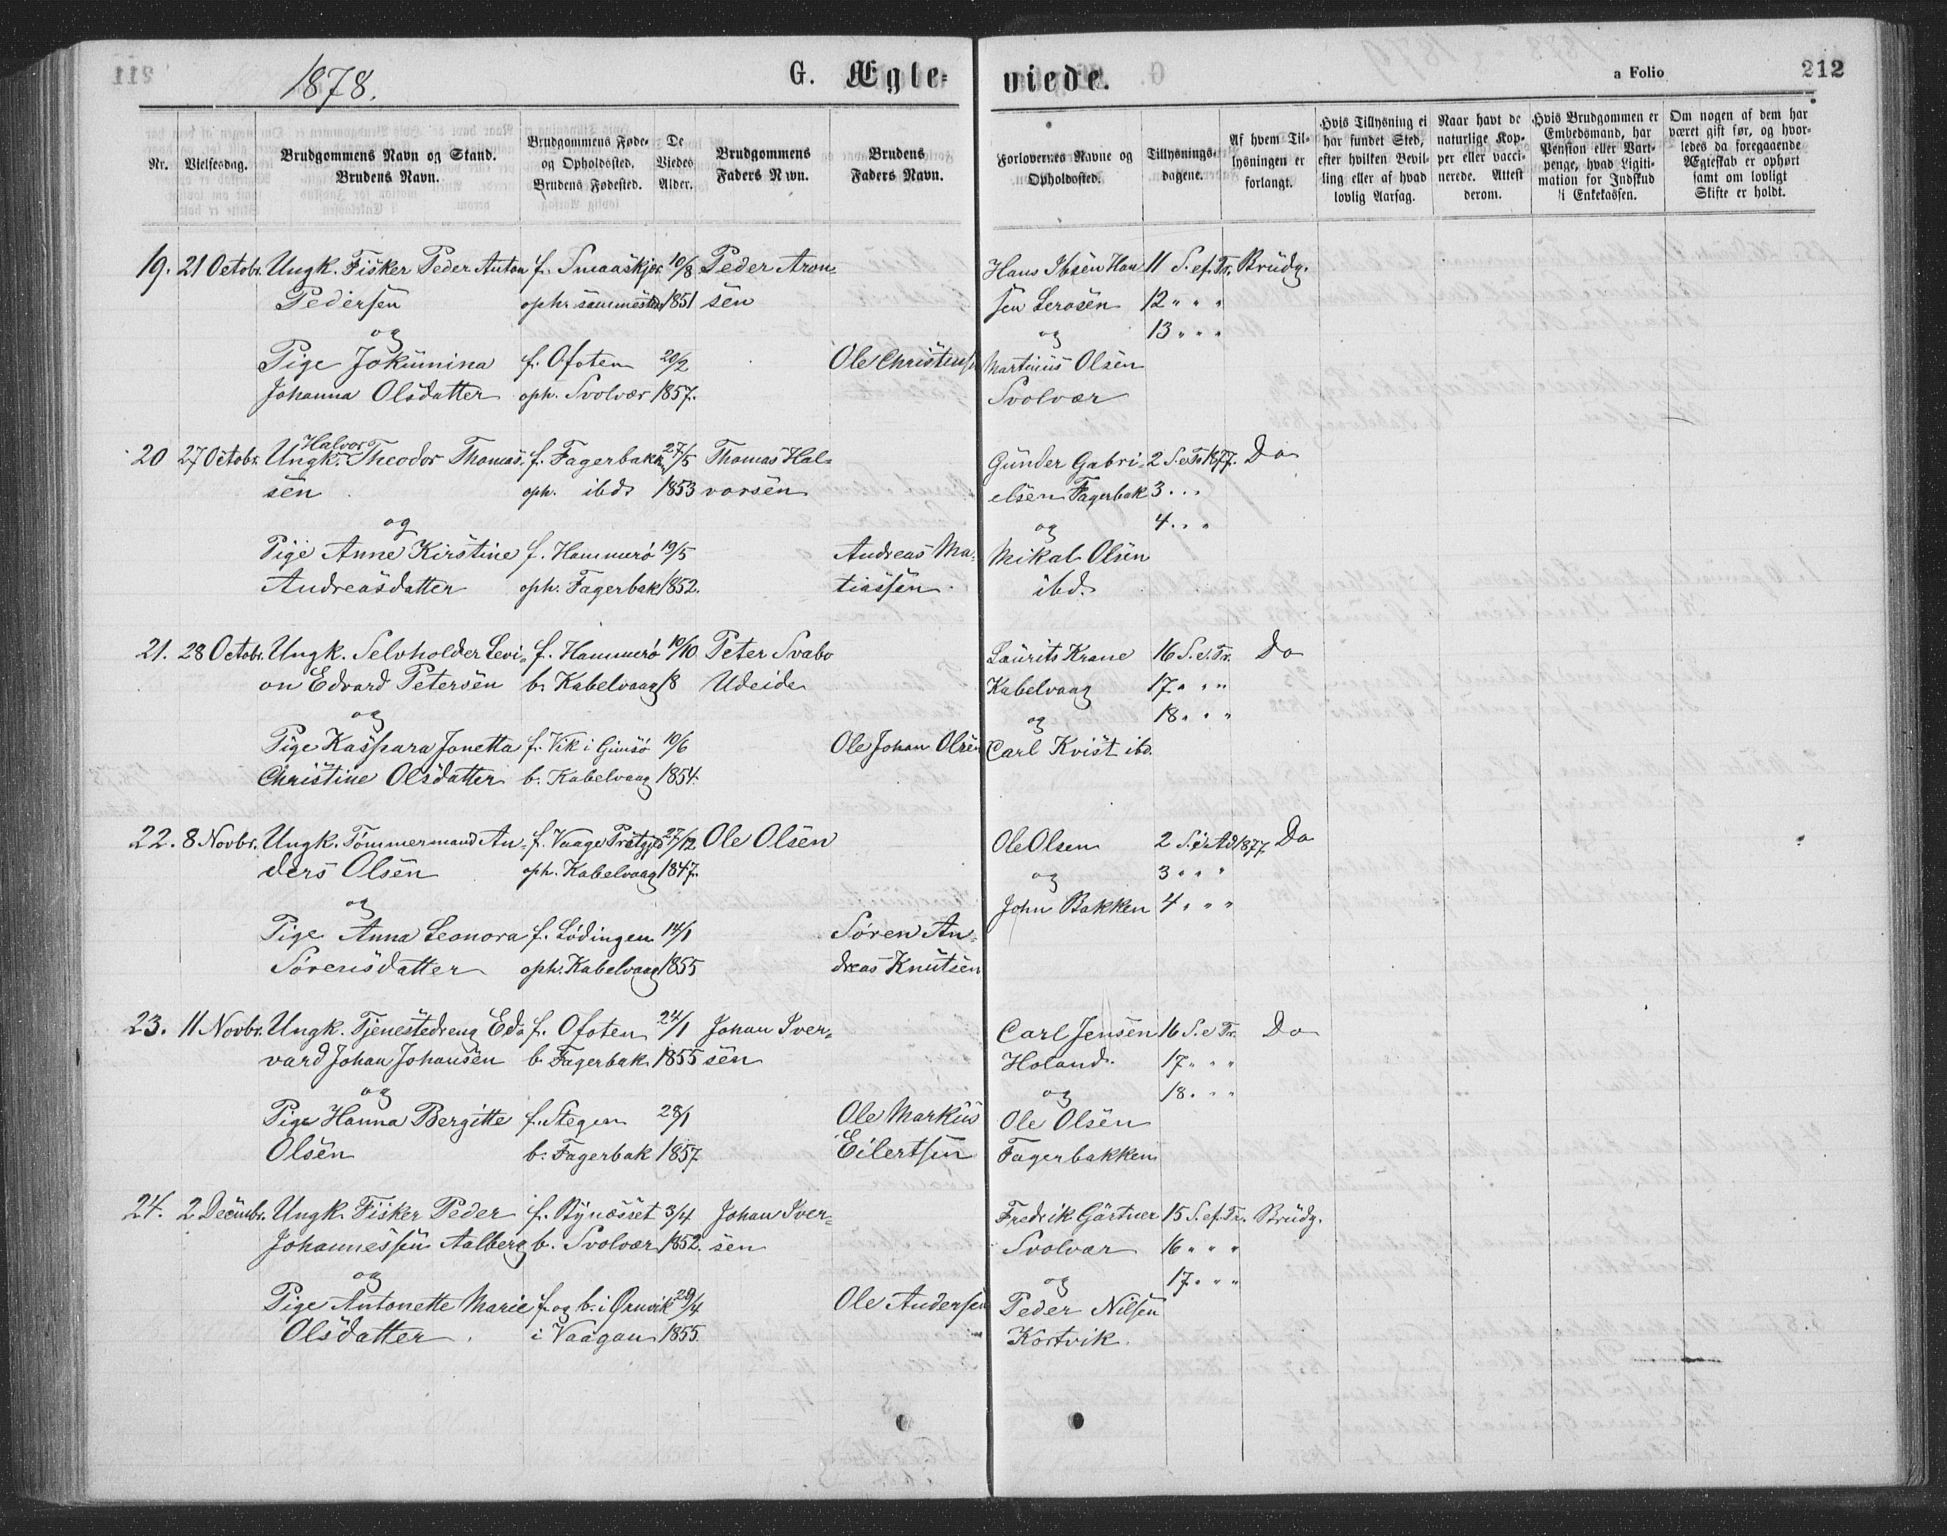 1878.
G. Ægte-
viede.
a Folio
212
Nr.
Vielsesdag.
Brudgommens Navn og Stand.
Brudens Navn.
Brudgommens Føde-
og Opholdssted.
Brudens Fødested.
De
Viedes
Alder.
Brudgommens
Faders Navn.
Brudens
Faders Navn.
Forlovernes Navne og
Opholdssted.
Tillysnings-
dagene.
Af hvem Til-
lysningen er
forlangt.
Hvis Tillysning ei
har fundet Sted,
efter hvilken Bevil-
ling eller af hvad
lovlig Aarsag.
Naar havt de
naturlige Kop-
per eller vacci-
nerede. Attest
derom.
Hvis Brudgommen er
Embedsmand, har
Pension eller Vart-
penge, hvad Ligiti-
mation for Indskud
i Enkekassen.
Om nogen af dem har
været gift før, og hvor-
ledes da foregaaende
Ægteskab er ophørt
samt om lovligt
Skifte er holdt.
19. 21 Octobr. Ungk. Fisker Peder Anton f. Smaaskjær 10/8 Peder Aron- Hans Ibsen Han 11 S. ef. Tr. Brudg.
Pedersen oph. sammested 1851 sen sen Lerosen 12 " " "
og og 13 " " "
Pige Jokumina f. Ofoten 20/2 Ole Christensen Martinus Olsen
Johanna Olsdatter oph. Svolvær 1857. Svolvær
Halvor
20 27 Octobr. Ungk. Theodor Thomas- f. Fagerbakk 27/5 Thomas Hal- Gunder Gabri- 2 S. e. Tr. 1877. Do
sen oph. ibd. 1853 vorsen elsen Fagerbak 3 " " "
og og 4 " " "
Pige Anne Kirstine f. Hammerø 19/5 Andreas Ma- Mikal Olsen
Andreasdatter oph. Fagerbak 1852. tiassen. ibd.
21. 28 Octobr. Ungk. Selvholder Levi- f. Hammerø 10/10 Peter Svabo Laurits Krane 16 S. e. Tr. Do
on Edvard Petersen b. Kabelvaag 18 Udeide Kabelvaag 17 " " "
og og 18 " " "
Pige Kaspara Jonetta f. Vik i Gimsø 10/6 Ole Johan Olsen Carl Kvist ibd.
Christine Olsdatter b. Kabelvaag 1854.
22. 8 Novbr. Ungk. Tømmermand An- f. Vaage Præstgjd 27/12 Ole Olsen Ole Olsen 2 S. i Ad 1877. Do
ders Olsen oph. Kabelvaag 1847. og 3 " " "
og John Bakken 4 " " "
Pige Anna Leonora f. Lødingen 14/1 Søren An-
Sørensdatter oph. Kabelvaag 1855 dreas Knutsen
23. 11 Novbr. Ungk. Tjenestedreng Ed- f. Ofoten 24/1 Johan Iver- Carl Jensen 16 S. e Tr. Do
vard Johan Johansen b. Fagerbak 1855 sen Holand. 17 " " "
og og 18 " " "
Pige Hanna Bergitte f. Stegen 28/1 Ole Markus Ole Olsen
Olsen b. Fagerbak 1857 Eilertsen Fagerbakken
24. 2 Decembr. Ungk. Fisker Peder f. Bynæsset 3/4 Johan Iver- Fredrik Gärtner 15 S. ef. Tr. Brudg.
Johannessen Aalberg b. Svolvær 1852. sen Svolvær 16 " " "
og og 17 " " "
Pige Antonette Marie f. og b. i Ørnvik 29/4 Ole Andersen Peder Nilsen
Olsdatter. i Vaagan 1855. Kortvik.